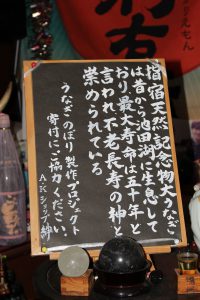 指宿天然記念物大うなぎ
は昔から池田湖に生息して
おり最大寿命は五十年と
言われ不老長寿の神と
崇められている
うなぎのぼり製作プロジェクト
寄付にご協力ください。
A.Kショップ 紳